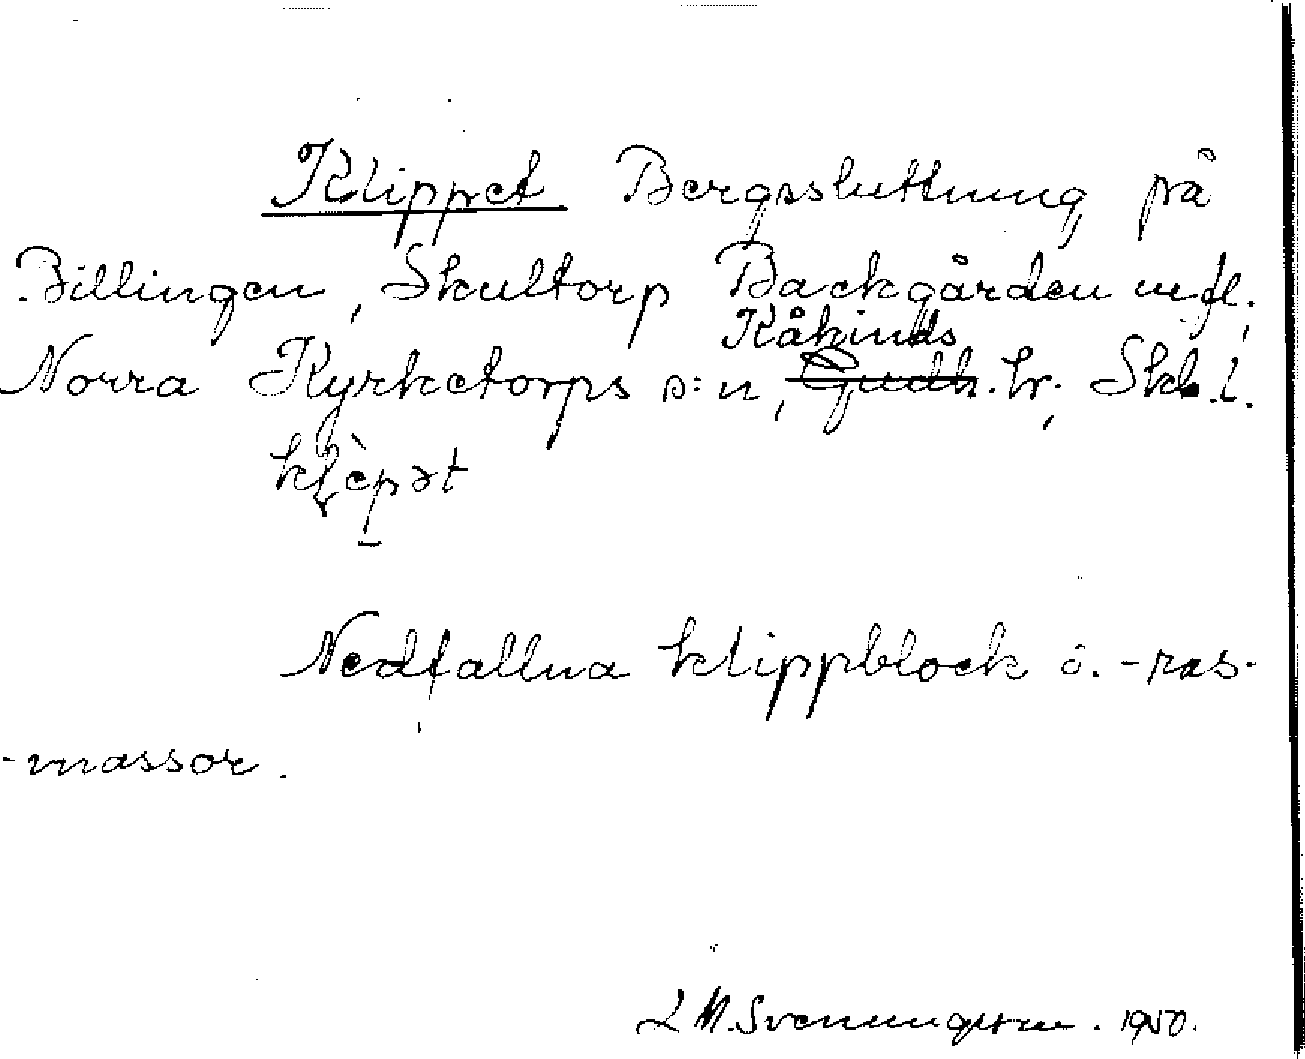 Klippet Bergssluttning på
Billingen, Skultorp Backgården m.fl.,
Kåkinds
Norra Kyrketorps s:n, Gudh. hr., Skb.l.
klèpət
Nedfallna klippblock o. -ras-
-massor.
L M. Svenungsson. 1950.